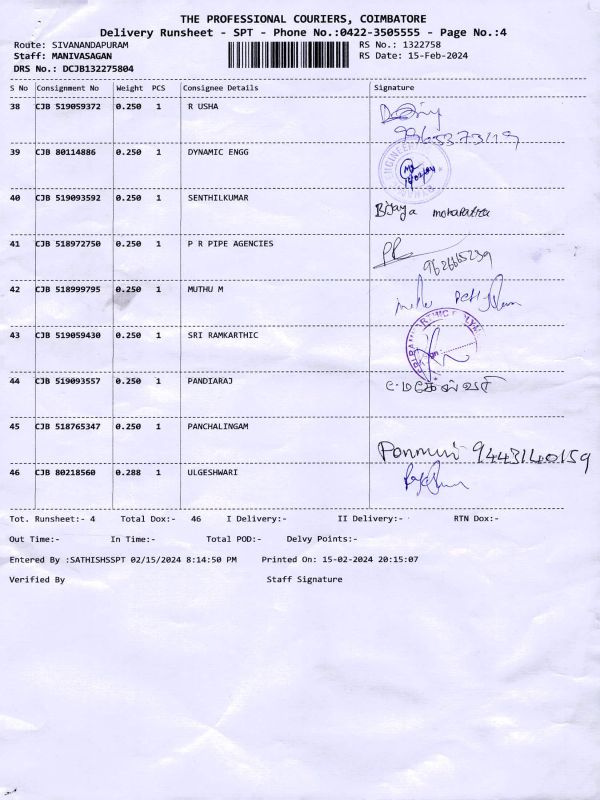 THE PROFESSIONAL COURIERS, COIMBATORE
Delivery Runsheet - SPT - Phone No.:0422-3505555 - Page No.:4
Route: SIVANANDAPURAM RS No.: 1322758
Staff: MANIVASAGAN RS Date: 15-Feb-2024
DRS No.: DCJB132275804
S No Consignment No Weight PCS Consignee Details Signature
38 CJB 519059372 0.250 1 R USHA
39 CJB 80114886 0.250 1 DYNAMIC ENGG
40 CJB 519093592 0.250 1 SENTHILKUMAR
Bijaya mohapatra
41 CJB 518972750 0.250 1 P R PIPE AGENCIES
42 CJB 518999795 0.250 1 MUTHU M
43 CJB 519059430 0.250 1 SRI RAMKARTHIC
44 CJB 519093557 0.250 1 PANDIARAJ
உ.மகேஸ்வரி
45 CJB 518765347 0.250 1 PANCHALINGAM
9443140159
46 CJB 80218560 0.288 1 ULGESHWARI
Tot. Runsheet:- 4 Total Dox:- 46 I Delivery:- II Delivery:- RTN Dox:-
Out Time:- In Time:- Total POD:- Delvy Points:-
Entered By :SATHISHSSPT 02/15/2024 8:14:50 PM Printed On: 15-02-2024 20:15:07
Verified By Staff Signature